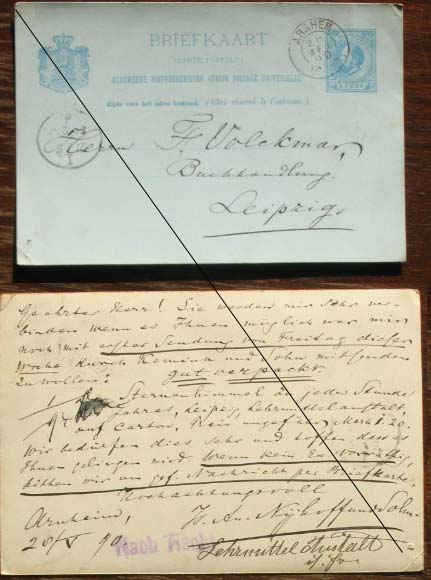 BRIEFKAART
(CARTE POSTALE)
ALGEMEENE POSTVEREENIGING (UNION POSTALE UNIVERSELLE)
Zijde voor het adres bestemd. (Côté réservé à l'adresse.)
ARNHEM
5 CENT
Herren F. Volckmar,
Buchhandlung.
Leipzig.
Geehrter Herr! Sie werden mir sehr ver-
binden wenn es Ihnen möglich war mir
noch mit erster Sendung von Freitag dieser
Woche durch Kemink und Sohn mitsenden
zu wollen:
gut verpackt.
Sternenhimmel zu jeder Stunde
Jahres, Leipzig, Lehrmittelanstalt,
auf Carton, Preis ungefähr Mark 20.
Wir bedürfen dies sehr und hoffen, dass es
Ihnen gelingen wird. Wenn kein Ex. vorräthig,
bitten wir um gef. Nachricht per Briefkarte,
Hochachtungsvoll
Arnheim,
Is. An. Nijhoff und Sohn
28/X 90.
Nach Tisch
Lehrmittel Anstalt